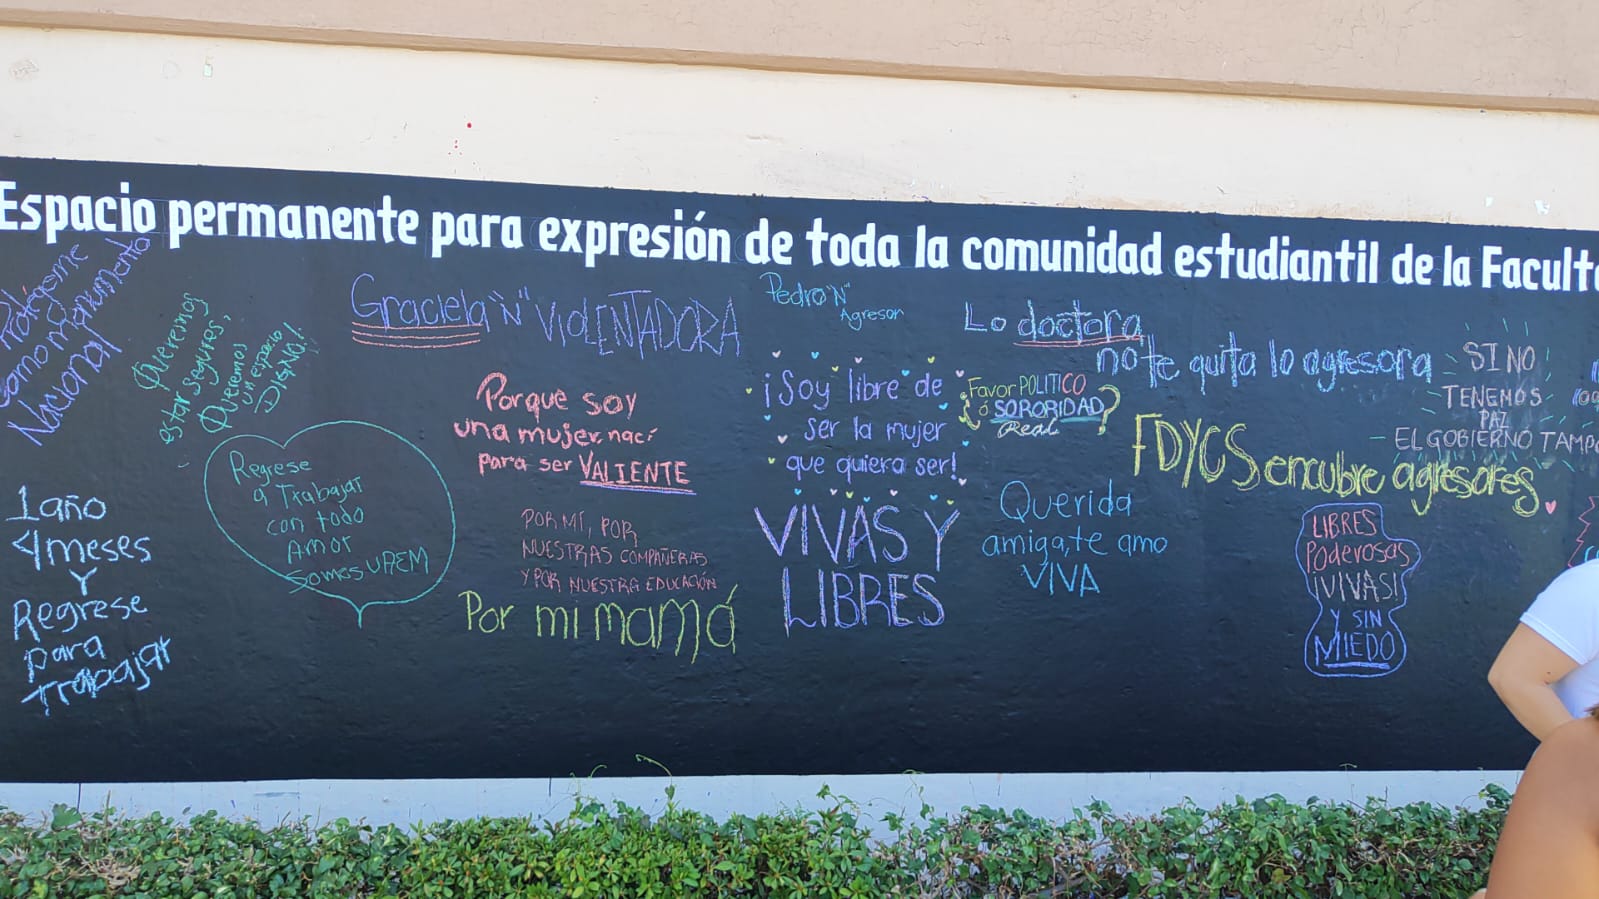 Espacio permanente para expresión de toda la comunidad estudiantil de la Facult
Protégeme
como monumento
Nacional
Queremos
estar segures,
Queremos
un espacio
DIGNO!
Graciela "N" VIOLENTADORA
Pedro "N"
Agresor
Lo doctora
no te quita lo agresora
SI NO
TENEMOS
PAZ
EL GOBIERNO TAMPO
Porque soy
una mujer, nací
para ser VALIENTE
¡Soy libre de
ser la mujer
que quiera ser!
¿Favor POLITICO
ó SORORIDAD
Real?
FDYCS encubre agresores
Regrese
a Trabajar
con todo
Amor
Somos UAEM
1 año
4 meses
Y
Regrese
para
trabajar
POR MÍ, POR
NUESTRAS COMPAÑERAS
Y POR NUESTRA EDUCACIÓN
Por mi mamá
VIVAS Y
LIBRES
Querida
amiga, te amo
VIVA
LIBRES
Poderosas
¡VIVAS!
Y SIN
MIEDO